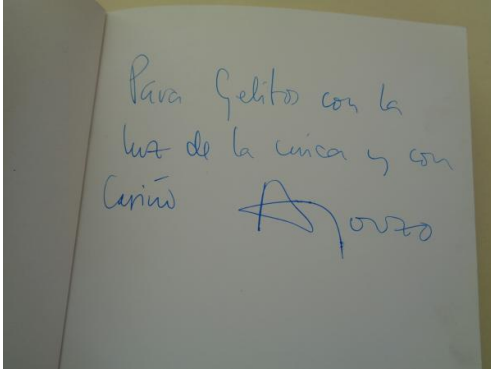 Para Gelitos con la
luz de la unica y con
Cariño